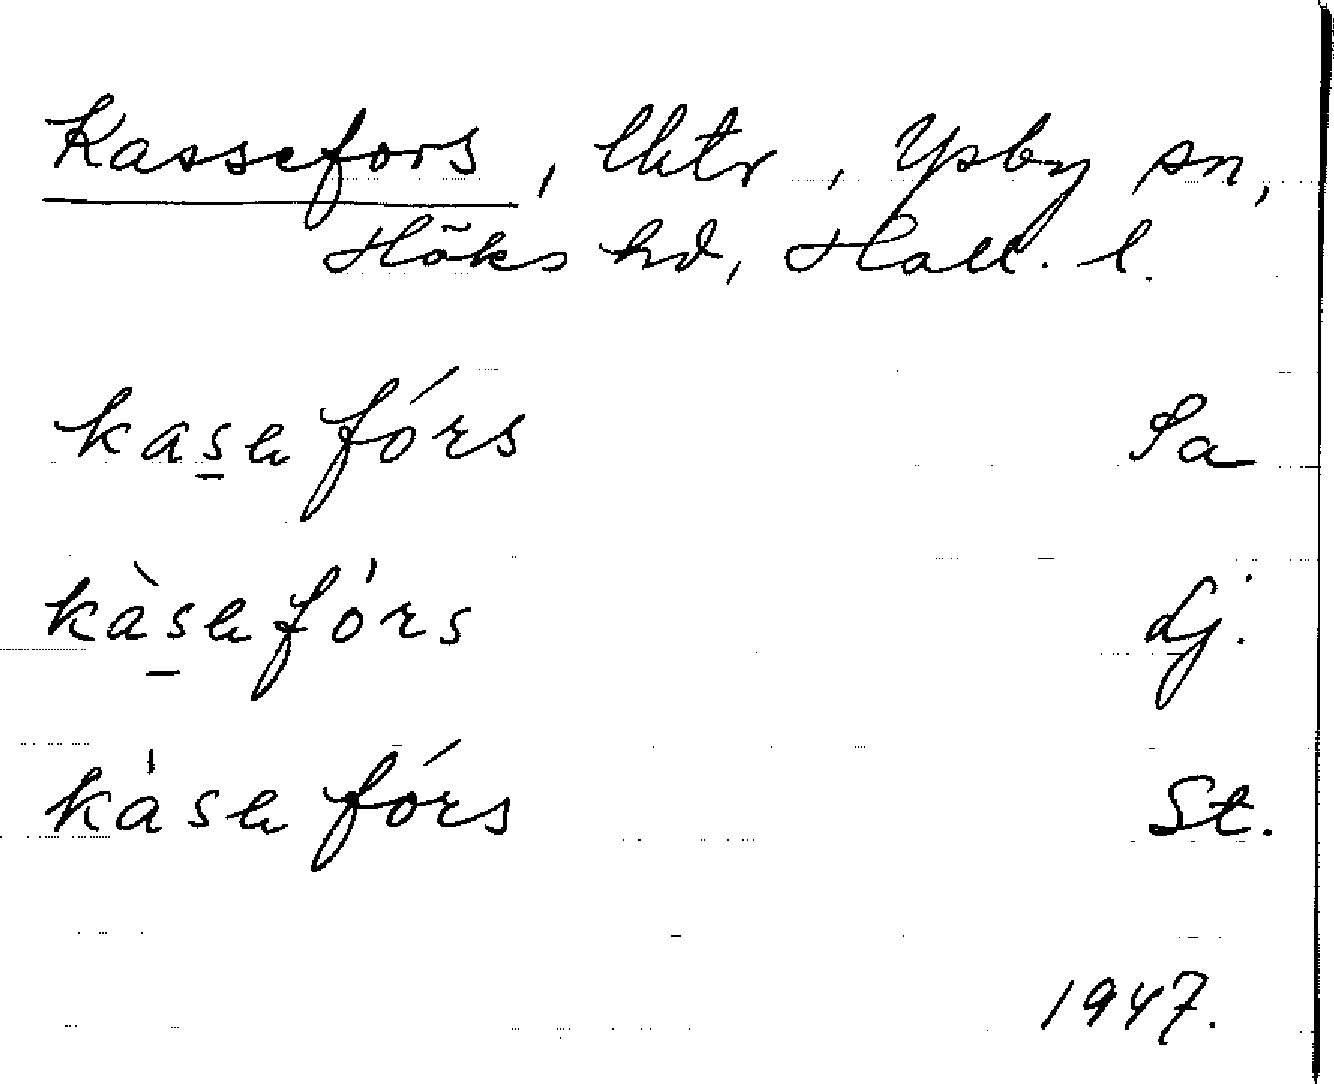 Kassefors, lhtr, Ysby sn,
Höks hd, Hall. l.
kasefórs Sa
kàsefórs
kásefórs St.
1947.